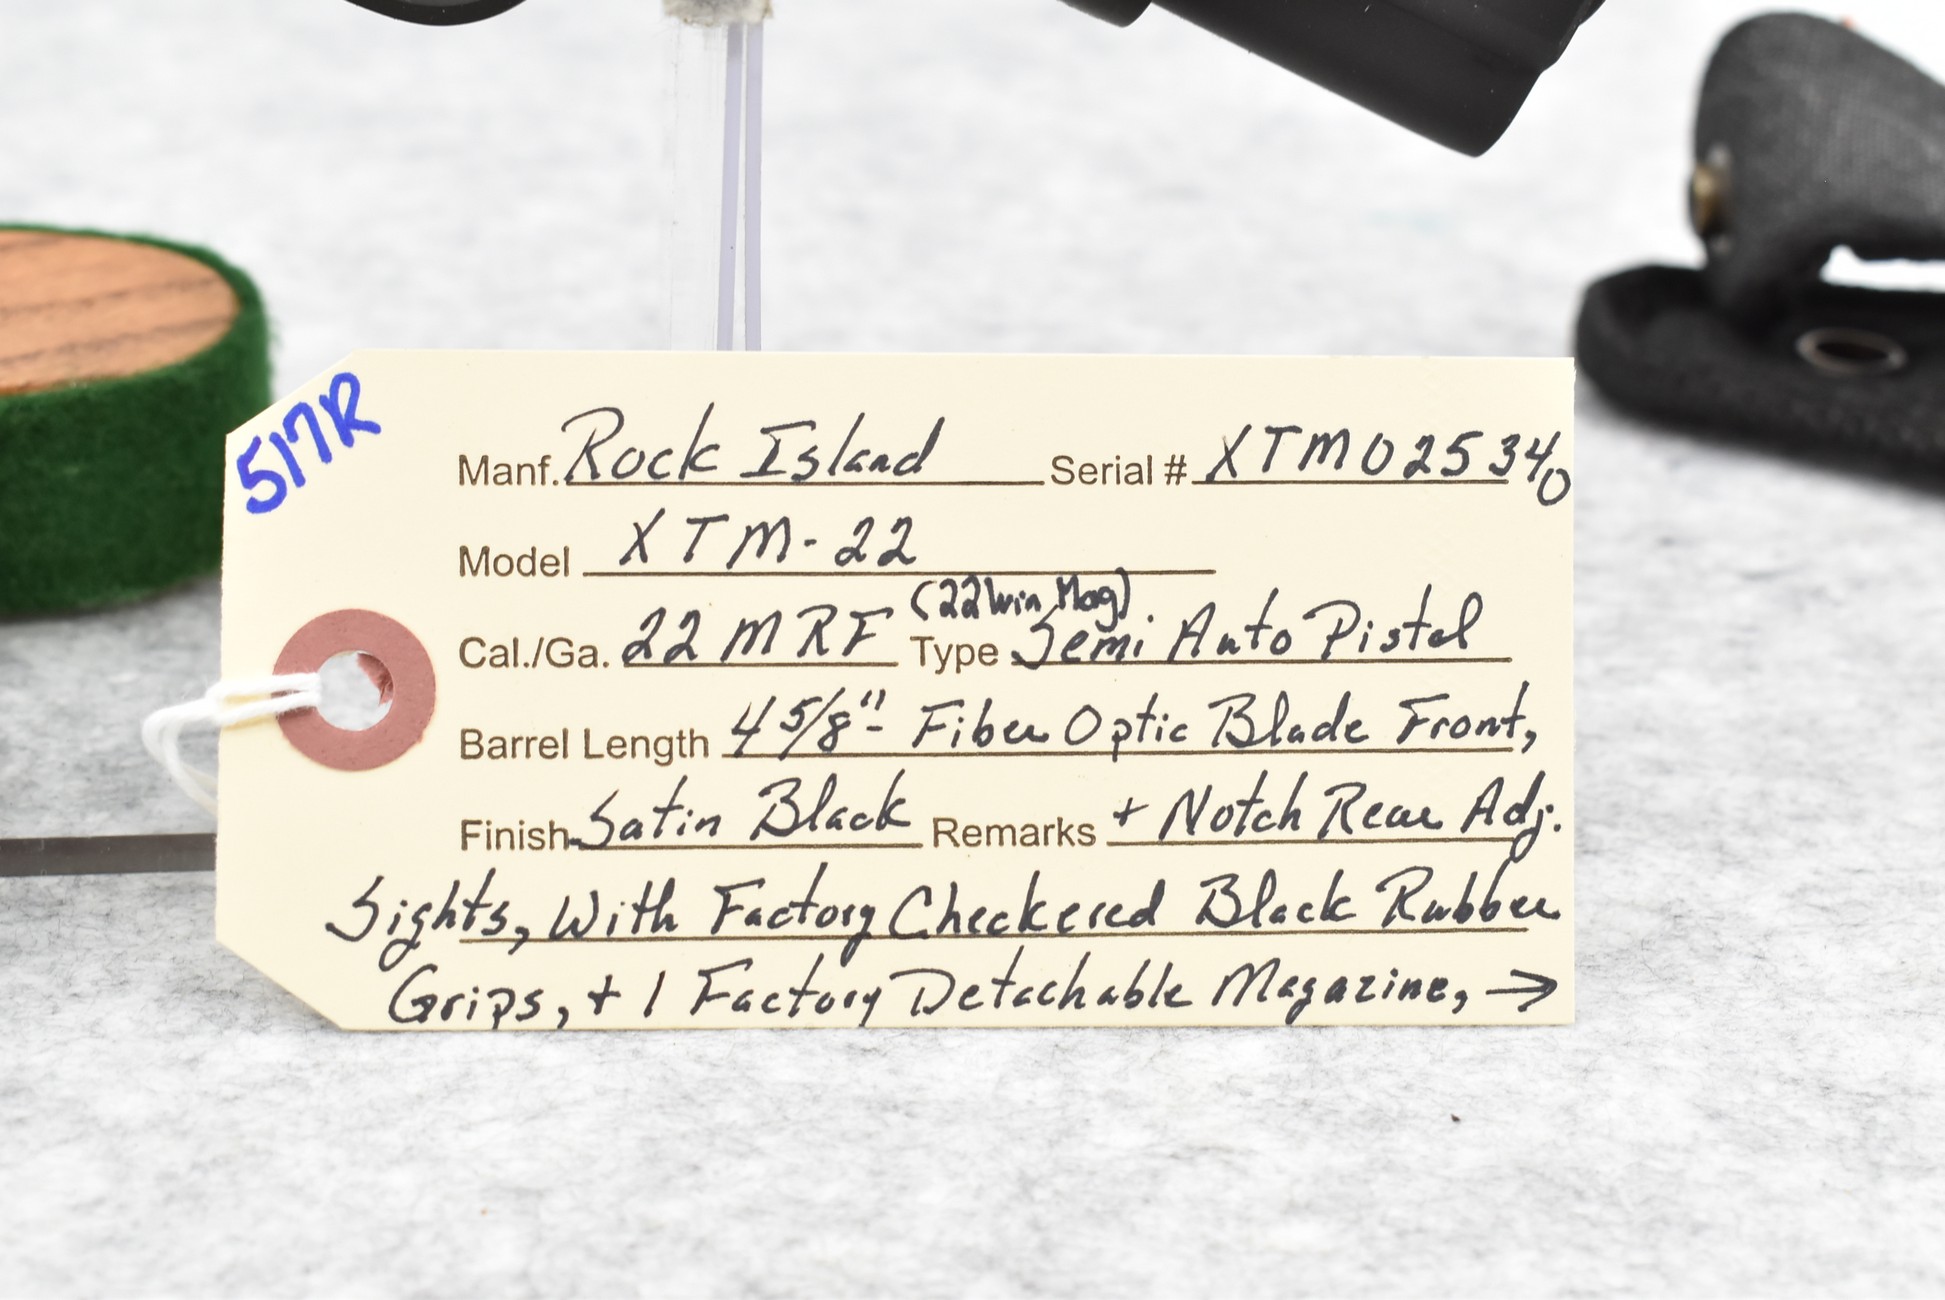 517R
Manf. Rock Island Serial # XTM025340
Model XTM-22
Cal./Ga. 22 MRF (22 Win Mag) Type Semi Auto Pistol
Barrel Length 4 5/8" - Fiber Optic Blade Front,
Finish Satin Black Remarks + Notch Rear Adj.
Sights, With Factory Checkered Black Rubber
Grips, + 1 Factory Detachable Magazine, →